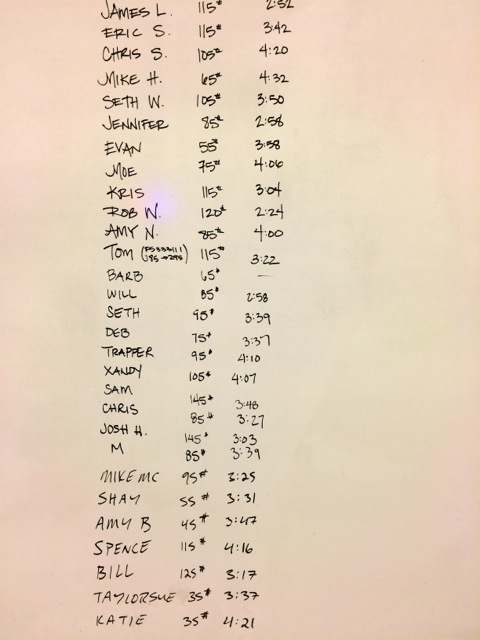 JAMES L. 115# 2:52
ERIC S. 115# 3:42
CHRIS S. 105# 4:20
MIKE H. 65# 4:32
SETH W. 105# 3:50
JENNIFER 85# 2:58
EVAN 55# 3:58
MOE 75# 4:06
KRIS 115# 3:04
ROB W. 120# 2:24
AMY N. 85# 4:00
TOM 115# 3:22
BARB 65# —
WILL 85# 2:58
SETH 95# 3:39
DEB 75# 3:37
TRAPPER 95# 4:10
XANDY 105# 4:07
SAM 145# 3:48
CHRIS 85# 3:27
JOSH H. 145# 3:03
M 85# 3:39
MIKE MC 95# 3:25
SHAY 55# 3:31
AMY B 45# 3:47
SPENCE 115# 4:16
BILL 125# 3:17
TAYLORSUE 35# 3:37
KATIE 35# 4:21